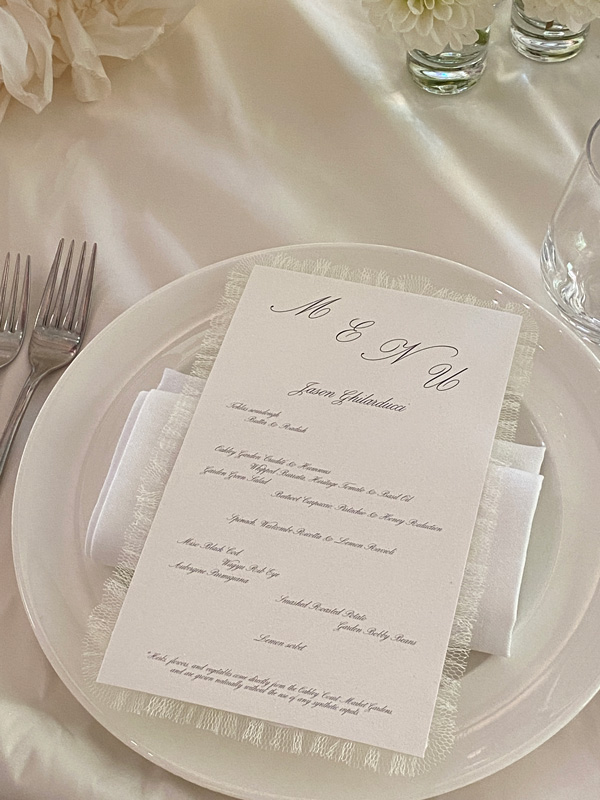 M E N U
Jason Ghilarducci
sourdough
Butter & Radish
Oakley Garden Crudités & Hummus
Whipped Burrata, Heritage Tomato & Basil Oil
Garden Green Salad
Beetroot Carpaccio, Pistachio & Honey Reduction
Spinach, Westcombe Ricotta & Lemon Ravioli
Miso Black Cod
Wagyu Rib Eye
Aubergine Parmigiana
Smashed Roasted Potato
Garden Bobby Beans
Lemon sorbet
*Herbs, flowers, and vegetables come directly from the Oakley Court Market Gardens
and are grown naturally without the use of any synthetic inputs